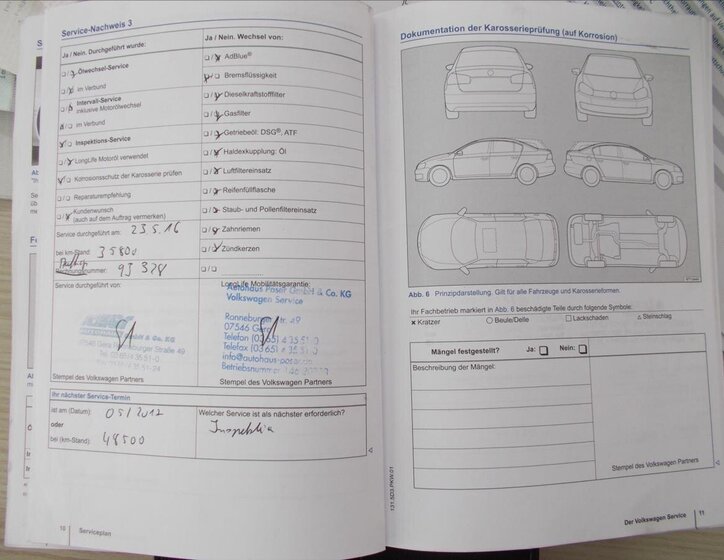 Service-Nachweis 3
Ja / Nein. Durchgeführt wurde:
Ölwechsel-Service
im Verbund
Intervall-Service
inklusive Motorölwechsel
im Verbund
Inspektions-Service
LongLife Motoröl verwendet
Korrosionsschutz der Karosserie prüfen
Reparaturempfehlung
Kundenwunsch
(auch auf dem Auftrag vermerken)
Service durchgeführt am: 23.5.16
bei km-Stand: 35800
nummer: 93 328
Service durchgeführt von:
Stempel des Volkswagen Partners
Ja / Nein. Wechsel von:
AdBlue®
Bremsflüssigkeit
Dieselkraftstofffilter
Gasfilter
Getriebeöl: DSG®, ATF
Haldexkupplung: Öl
Luftfiltereinsatz
Reifenfüllflasche
Staub- und Pollenfiltereinsatz
Zahnriemen
Zündkerzen
LongLife Mobilitätsgarantie:
Autohaus Poser GmbH & Co. KG
Volkswagen Service
Ronneburger Str. 49
07546 Gera
Telefon (03 65) 4 35 51-0
Telefax (03 65) 4 35 51
info@autohaus-poser.de
Betriebsnummer
Stempel des Volkswagen Partners
Ihr nächster Service-Termin
ist am (Datum): 05/2017
oder
bei (km-Stand): 48500
Welcher Service ist als nächster erforderlich?
Inspektion
10 Serviceplan
Dokumentation der Karosserieprüfung (auf Korrosion)
Abb. 6 Prinzipdarstellung. Gilt für alle Fahrzeuge und Karosserieformen.
Ihr Fachbetrieb markiert in Abb. 6 beschädigte Teile durch folgende Symbole:
× Kratzer ○ Beule/Delle □ Lackschaden △ Steinschlag
Mängel festgestellt? Ja: Nein:
Beschreibung der Mängel:
Stempel des Volkswagen Partners
131.5D3.PKW.01
Der Volkswagen Service 11